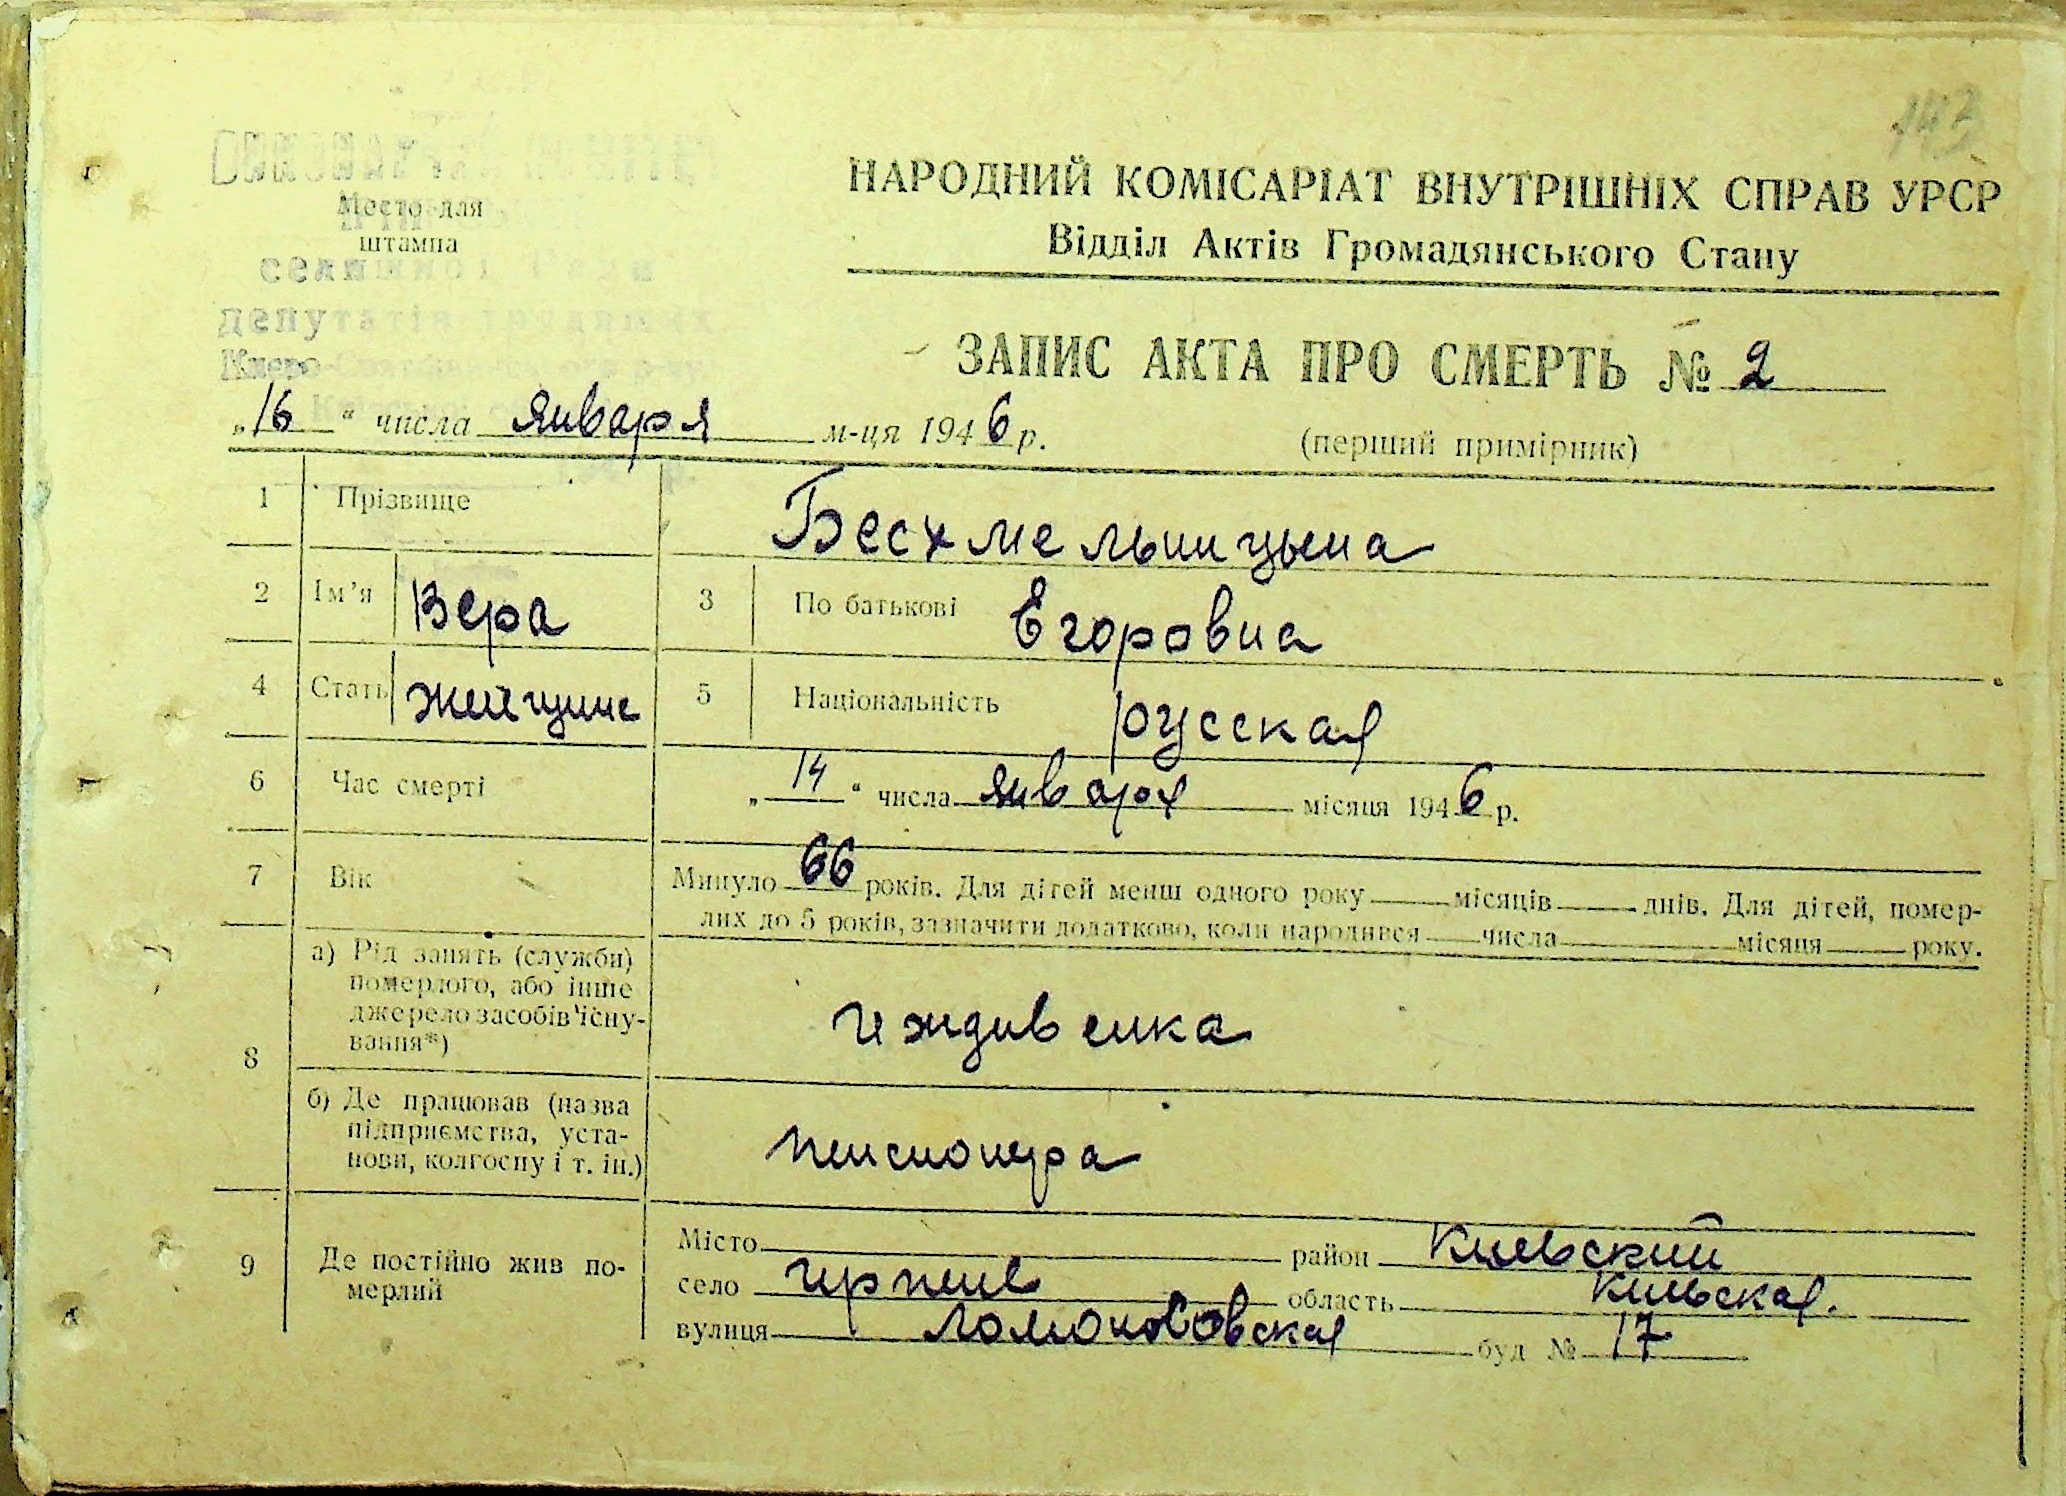 143
Место для
штампа
селищної Ради
депутатів трудящих
НАРОДНИЙ КОМІСАРІАТ ВНУТРІШНІХ СПРАВ УРСР
Відділ Актів Громадянського Стану
ЗАПИС АКТА ПРО СМЕРТЬ № 2
„16“ числа января м-ця 1946 р.
(перший примірник)
1 Прізвище Бесхмельницына
2 Ім’я Вера 3 По батькові Егоровна
4 Стать женщине 5 Національність русская
6 Час смерті „14“ числа января місяця 1946 р.
7 Вік Минуло 66 років. Для дітей менш одного року місяців днів. Для дітей, помер-
лих до 5 років, зазначити додатково, коли народився числа місяця року.
8 а) Рід занять (служби)
померлого, або інше
джерело засобів існу-
вання*)
иждивенка
б) Де працював (назва
підприємства, уста-
нови, колгоспу і т. ін.)
пенсионера
9 Де постійно жив по-
мерлий
Місто район Киевский
село Ирпень область Киевская.
вулиця Ломоносовская буд № 17